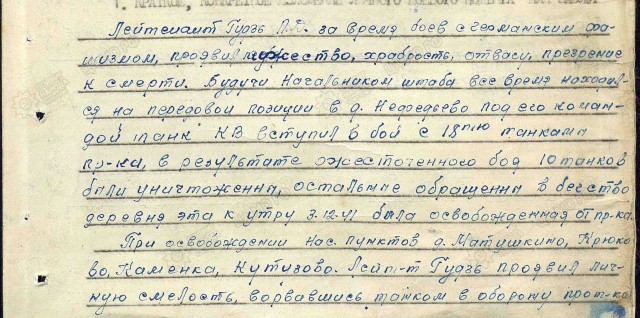 1. КРАТКОЕ, КОНКРЕТНОЕ
Лейтенант Гудзь П.Д. за время боев с германским фа-
шизмом, проявил мужество, храбрость, отвагу, презрение
к смерти. Будучи Начальником штаба все время находил-
ся на передовой позиции в д. Нефедьево под его коман-
дой танк КВ вступил в бой с 18тью танками
пр-ка, в результате ожесточенного боя 10 танков
были уничтоженны, остальные обращенны в бегство
деревня эта к утру 3.12.41 была освобожденная от пр-ка.
При освобождении нас. пунктов д. Матушкино, Крюко-
во, Каменка, Кутузово. Лейт-т Гудзь проявил лич-
ную смелость, ворвавшись танком в оборону прот-ка